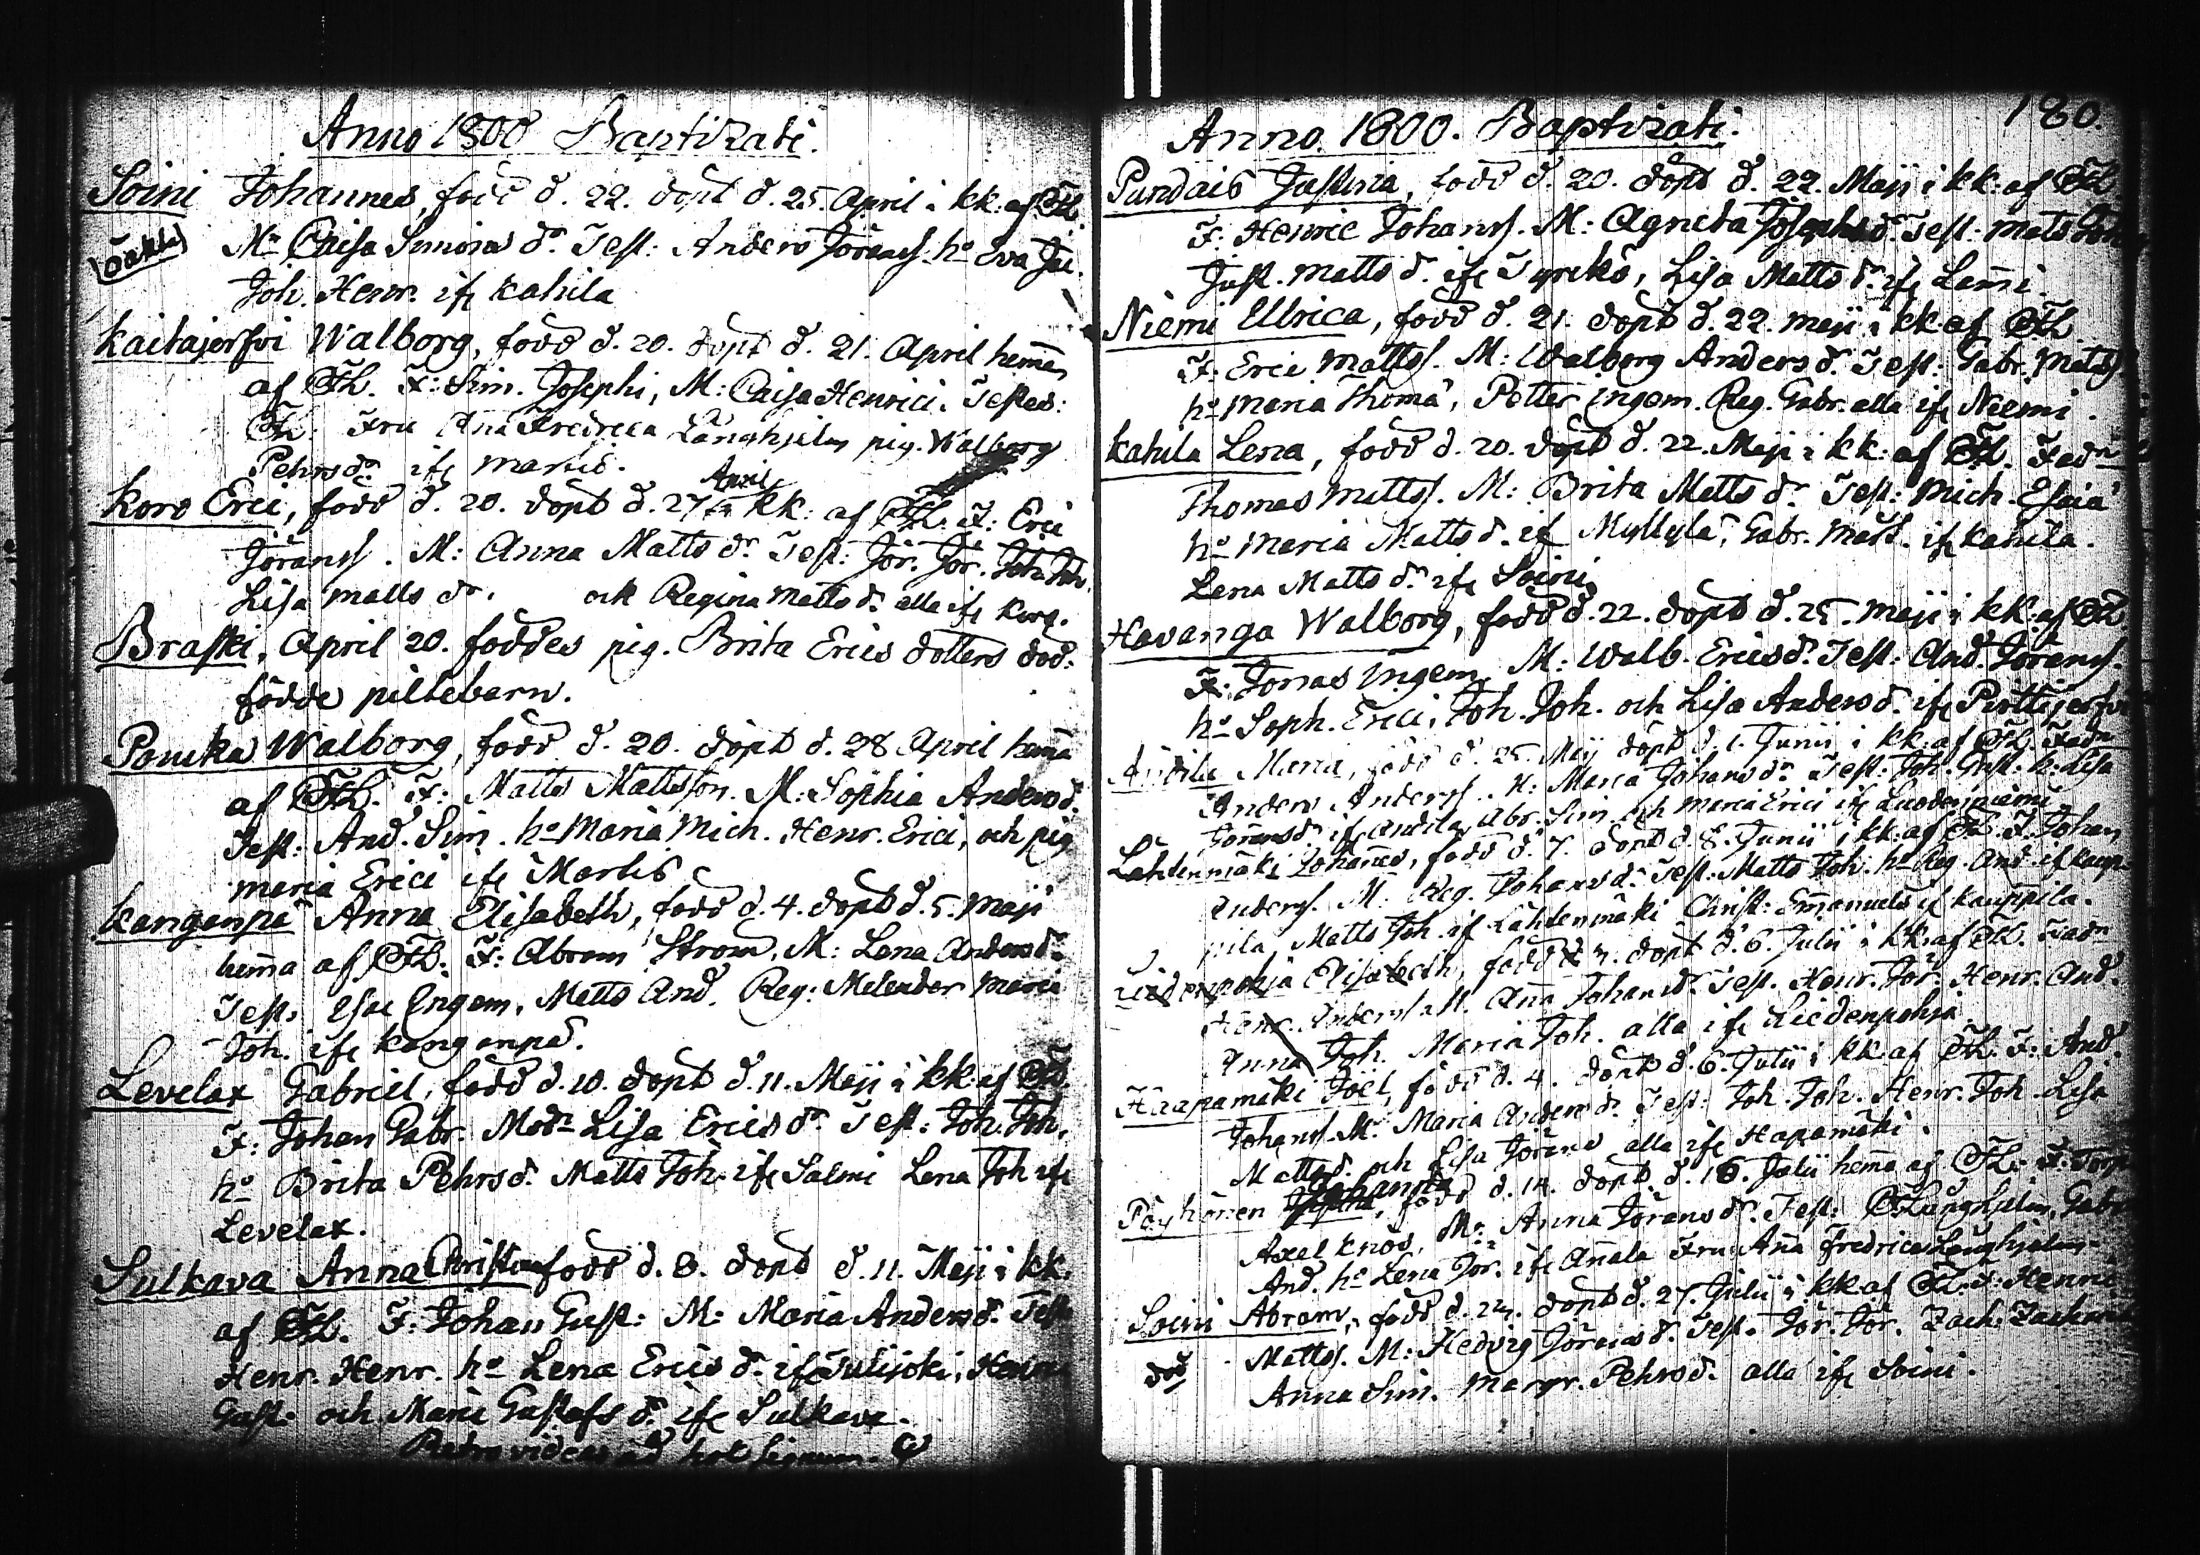 Anno 1800 Baptizati.
Soini Johannes, född d. 22. döpt d. 25. April i kk. af FL.
oäkta M: Caisa Simons dr. Test: Anders Jörans. ho Eva Jac.
Joh. Henr. ifr Kahila
Kaitajerfvi Walborg, född d. 20. döpt d. 21. April hemma
af FL. F: Sim. Josephi, M: Caisa Henrici. Testes:
FL. Fru Ana Fredrica Länghjelm pig. Walborg
Pehrsdr. ifr Martis.
Koro Erici, född d. 20. döpt d. 27 April i kk: af FL. F: Eric
Jöranss. M: Anna Matts dr. Test: Jör. Jör. Joh. Joh.
Lisa Matts dr. och Regina Matts d. alla ifr Koro.
Braski, April 20. föddes pig. Brita Erics dotters död-
födde piltebarn.
Pouttu Walborg, född d. 20. döpt d. 28 April hemma
af FL. F: Matts Mattsson. M: Sophia Anders d.
Test: And. Sim. ho Maria Mich. Henr. Erici, och pig.
Maria Erici ifr Martis
Kanganpä Anna Elisabeth, född d. 4. döpt d. 5. Maji
hemma af FL. F: Abram Strom, M: Lena Anders d.
Test. Esai Engem, Matts And. Reg: Melender Maria
Joh. ifr Kanganpä.
Levelax Gabriel, född d. 10. döpt d. 11. Maji i kk. af FL.
F: Johan Gabr. Modr Lisa Erics dr Test. Joh. Joh.
ho Brita Pehrs d. Matts Joh. ifr Salmi Lena Joh ifr
Levelax.
Sulkava Anna Christina född d. 8. döpt d. 11. Maji i kk.
af FL. F: Johan Gust: M: Maria Anders d. Test
Henr. Henr. ho Lena Erics dr. ifr Julijoki, Henr
Gust. och Maria Gustafs dr. ifr Sulkava.
Retro videas ad hoc signum.
180.
Anno. 1800. Baptizati.
Pundais Justina, född d. 20. döpt d. 22. Maji i kk: af FL
F: Henric Johanss. M: Agneta Josephs d. Test: Mats
Just. Matts d. ifr Tyrkö, Lisa Matts d. ifr Lammi.
Niemi Ullrica, född d. 21. döpt d. 22. Maji i kk. af FL
F: Eric Mattss. M: Walborg Anders d. Test: Gabr. Matss.
ho Maria Thomæ, Petter Ingem. Reg. Gabr. alla ifr Niemi.
Kahila Lena, född d. 20. döpt d. 22. Maji i kk: af FL. Fadr
Thomas Mattss. M: Brita Matts dr Test: Mich. Esaiæ
ho Maria Matts d. if Myllylä, Gabr. Matts. if Kahila.
Lena Matts dr ifr Soini
Havanga Walborg, född d. 22. döpt d. 25. Maji i kk. af FL
F: Jonas Ingem. M: Walb. Erics d. Test: And. Jöranss.
ho Soph. Erici, Joh. Joh. och Lisa Anders d. ifr Perttijerfvi
Andila Maria, född d. 25. Maj döpt d. 1. Junii i kk: af FL. Fadr
Anders Anderss. M: Maria Johans dr Test: Joh. Gust. h: Lisa
Jörans d. ifr Andila Abr. Sim. och Maria Erici ifr Luodenniemi
Lahdenmäki Johannes, född d. 7. döpt d. 8. Junii i kk. af FL. F: Johan
Anderss. M: Reg. Johans d. Test: Matts Joh. ho Reg. And. if Kaup-
pila, Matts Joh. if Lahdenmäki Christ: Emanuels if Kauppila.
Liedenpohja Elisabeth, född d. döpt d. 6. Julii i kk. af FL. Fadr
Henr. Anderss. M. Ana Johans d. Test. Henr. Jör. Henr. And.
Anna Joh. Maria Joh. alla ifr Liedenpohja
Haapamäki Joel, född d. 4. döpt d. 6. Julii i kk. af FL. F: And.
Johanss. M: Maria Anders d. Test: Joh. Joh. Henr. Joh. Lisa
Matts d. och Lisa Jörans alla ifr Hapamäki.
Pöyhönen Johanna, född d. 14. döpt d. 16. Julii hemma af FL. F:
Axel Knös, M: Anna Jörans dr. Test: Länghjelm, Gabr
And. ho Lena Jör. ifr Anala Fru Ana Fredrica Länghjelm.
Soini Abram, född d. 24. döpt d. 27. Julii i kk. af FL. F: Henric
död Mattss. M: Hedvig Jörans d. Test. Jör. Jör. Zach: Zachr
Anna Sim. Margr. Pehrs d. alla ifr Soini.